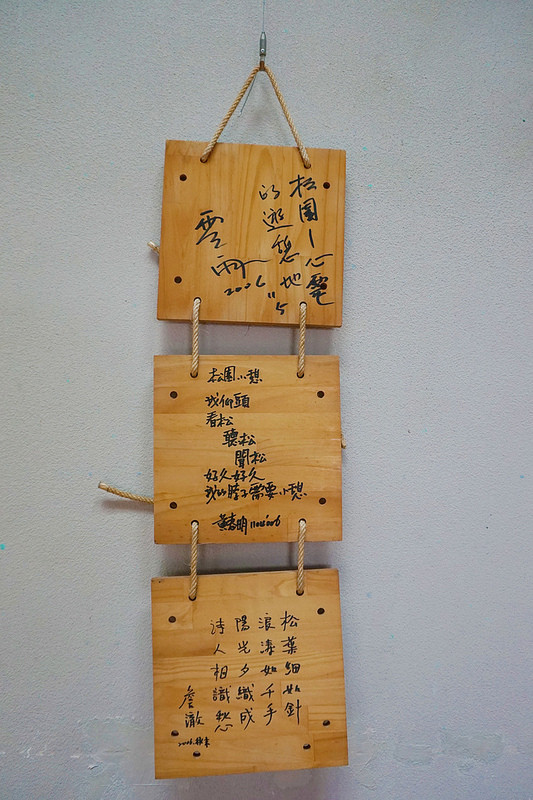 松園—心靈
的遊憩地
2006
11 5
松園小憩
我仰頭
看松
聽松
聞松
好久好久
我的脖子需要小憩
黃春明
松葉細如針
浪濤如千手
陽光夕織成
詩人相識愁
詹澈
2006.